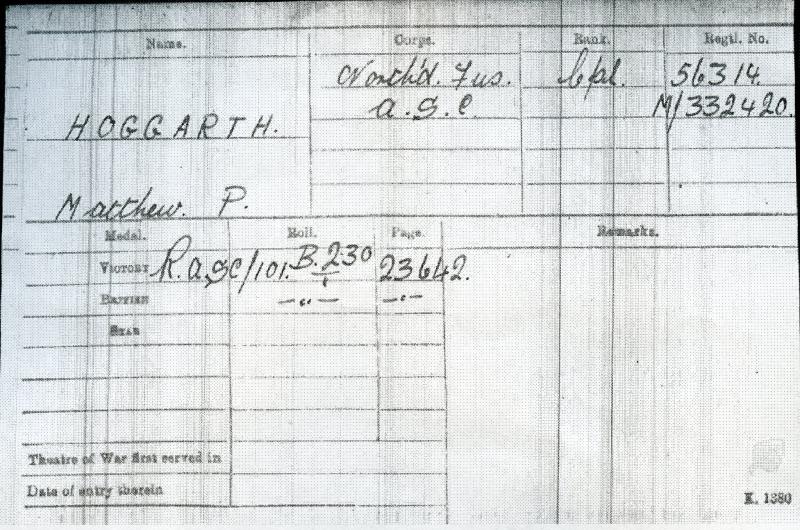 Name. Corps. Rank. Regtl. No.
North'd. Fus. Cpl. 56314.
A.S.C. M/332420.
HOGGARTH.
Matthew. P.
Medal. Roll. Page. Remarks.
VICTORY R.A.S.C/101. B.230 23642.
BRITISH —"— —"—
STAR
Theatre of War first served in
Date of entry therein
K. 1380